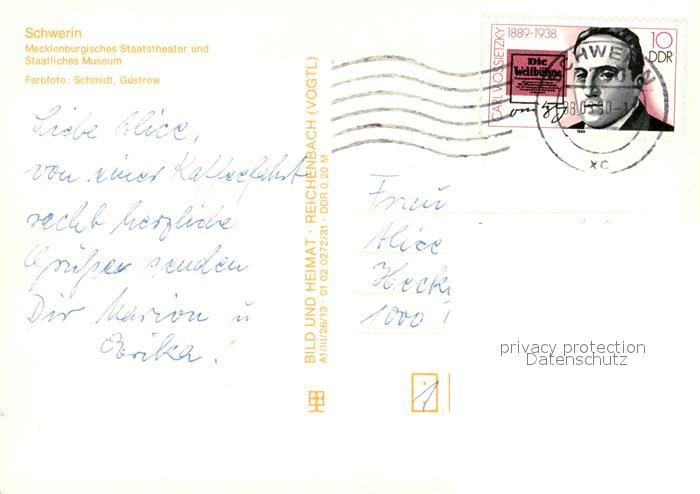 Schwerin
Mecklenburgisches Staatstheater und
Staatliches Museum
Farbfoto: Schmidt, Güstrow
Liebe Alice,
von einer Kaffeefahrt
recht herzliche
Grüße senden
Dir Marion u
Erika.
BILD UND HEIMAT · REICHENBACH (VOGTL)
A1/III/26/13 · 01 02 0272/31 · DDR 0,20 M
CARL V. OSSIETZKY 1889-1938
10
DDR
Die
Weltbühne
1989
SCHWERIN
xc
Frau
Alice
1000
privacy protection
Datenschutz
1